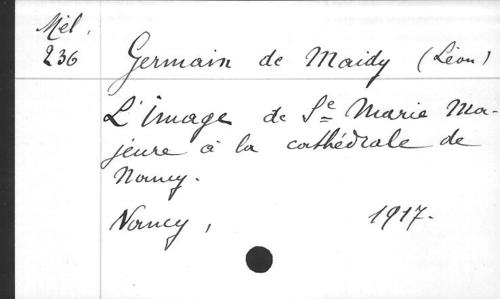 Mél.
236
Germain de Maidy (Léon)
L'Image de Ste Marie Ma-
jeure à la cathédrale de
Nancy.
Nancy, 1917.